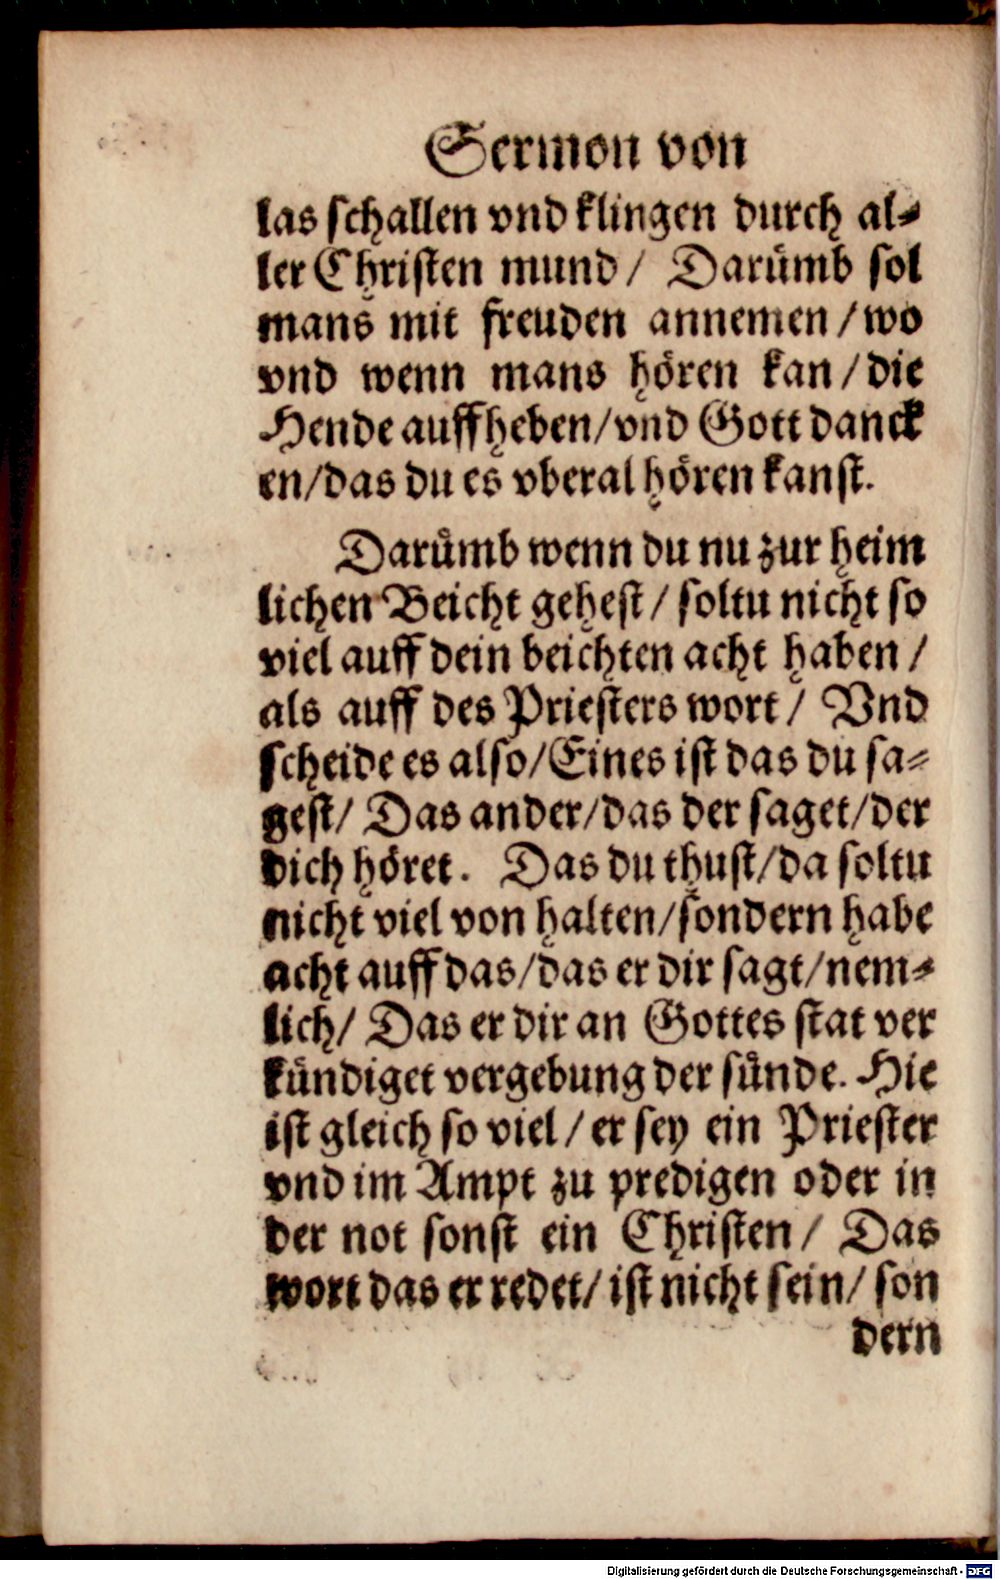 Sermon von
las schallen vnd klingen durch al⸗
ler Christen mund/ Darümb sol
mans mit freuden annemen/wo
vnd wenn mans hören kan/die
Hende auffheben/vnd Gott danck
en/das du es vberal hören kanst.
Darümb wenn du nu zur heim
lichen Beicht gehest/ soltu nicht so
viel auff dein beichten acht haben/
als auff des Priesters wort/ Vnd
scheide es also/Eines ist das du sa⸗
gest/ Das ander/das der saget/der
dich höret. Das du thust/da soltu
nicht viel von halten/sondern habe
acht auff das/das er dir sagt/nem⸗
lich/ Das er dir an Gottes stat ver
kündiget vergebung der sünde. Hie
ist gleich so viel/er sey ein Priester
vnd im Ampt zu predigen oder in
der not sonst ein Christen/ Das
wort das er redet/ist nicht sein/son
dern
Digitalisierung gefördert durch die Deutsche Forschungsgemeinschaft - DFG